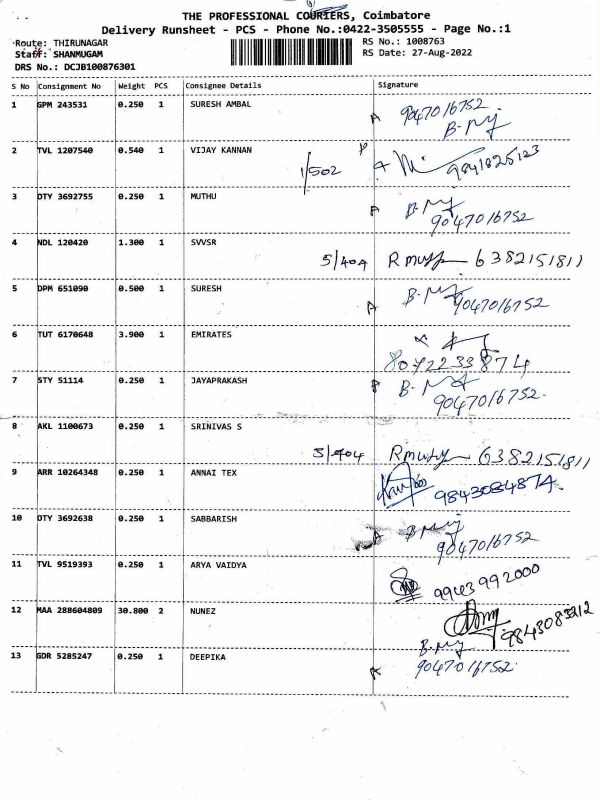 THE PROFESSIONAL COURIERS, Coimbatore
Delivery Runsheet - PCS - Phone No.:0422-3505555 - Page No.:1
Route: THIRUNAGAR RS No.: 1008763
Staff: SHANMUGAM RS Date: 27-Aug-2022
DRS No.: DCJB100876301
S No Consignment No Weight PCS Consignee Details Signature
1 GPM 243531 0.250 1 SURESH AMBAL
A 9047016752
2 TVL 1207540 0.540 1 VIJAY KANNAN
1/502 9841825123
3 DTY 3692755 0.250 1 MUTHU
9047016752
4 NDL 120420 1.300 1 SVVSR
5/404 6382151811
5 DPM 651090 0.500 1 SURESH
A 9047016752
6 TUT 6170648 3.900 1 EMIRATES
8072233874
7 STY 51114 0.250 1 JAYAPRAKASH
9047016752
8 AKL 1100673 0.250 1 SRINIVAS S
5/404 6382151811
9 ARR 10264348 0.250 1 ANNAI TEX
9843084874
10 DTY 3692638 0.250 1 SABBARISH
9047016752
11 TVL 9519393 0.250 1 ARYA VAIDYA
9943992000
12 MAA 288604809 30.800 2 NUNEZ
13 GDR 5285247 0.250 1 DEEPIKA
9047016752